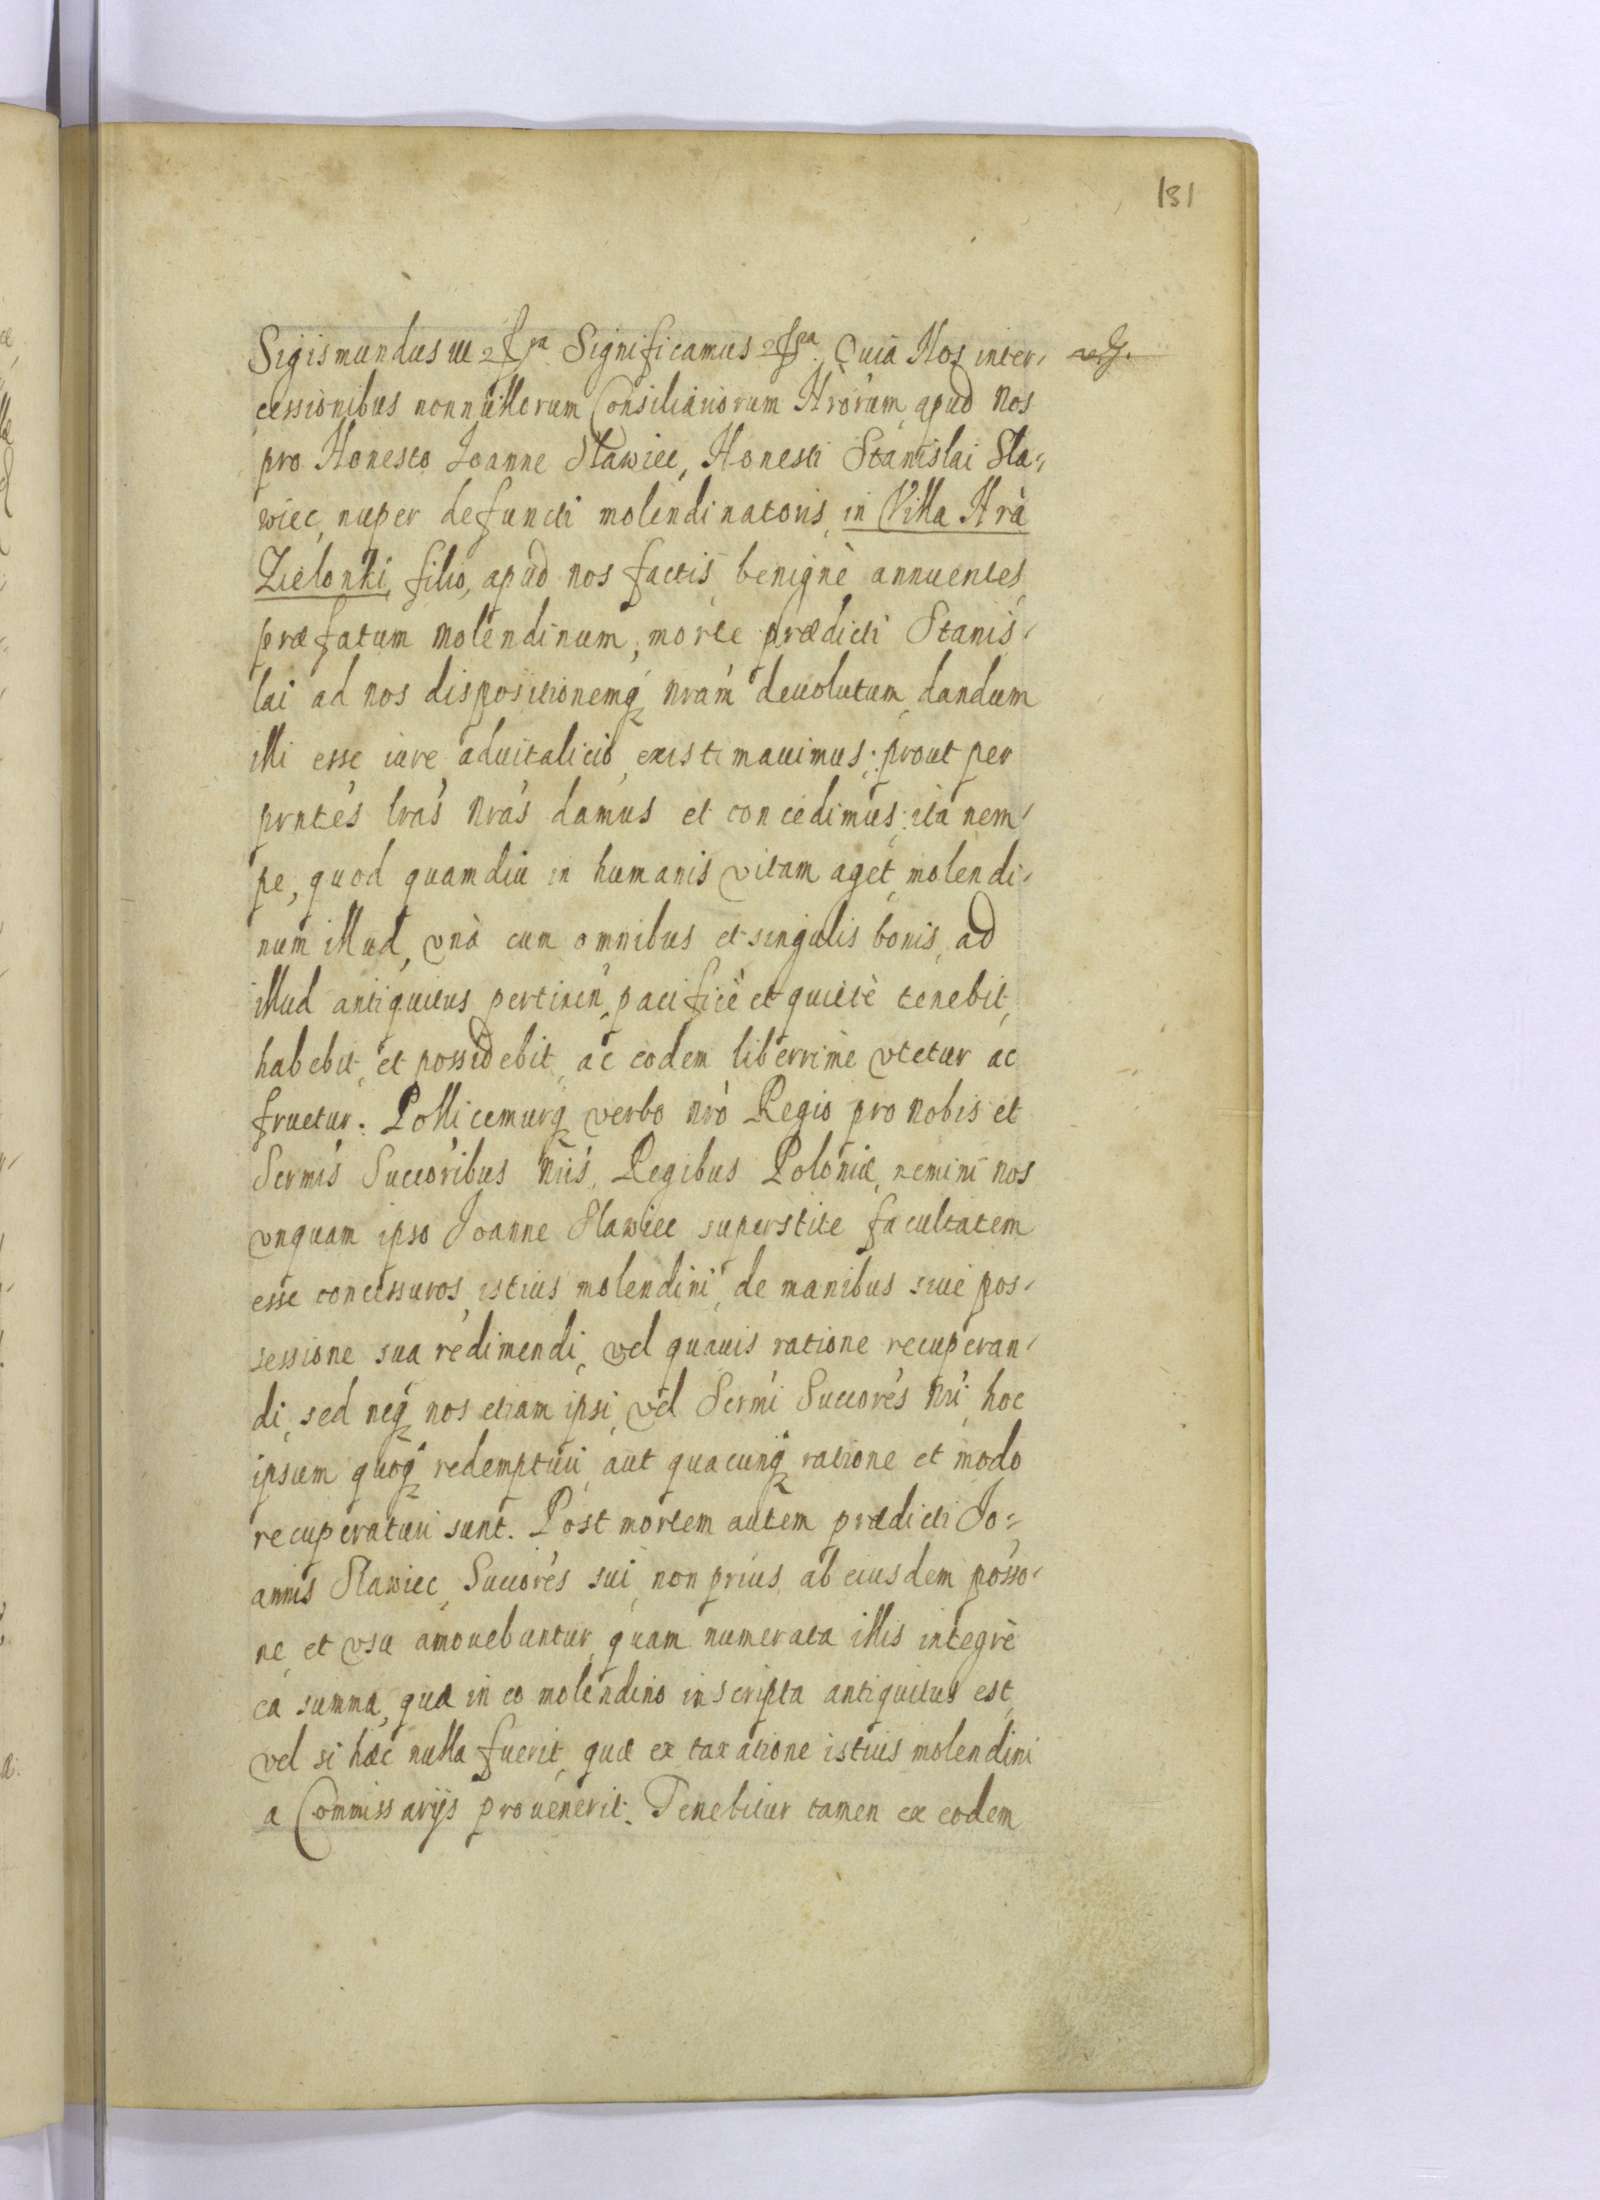 181
Sigismundus III Significamus Quia Nos inter-
cessionibus nonnullorum Consiliariorum Nrorum apud Nos
pro Honesto Joanne Slawiec, Honesti Stanislai Sla-
wiec, nuper defuncti molendinatoris, in Villa Nra
Zielonki, filio, apud nos factis benignè annuentes,
præfatum Molendinum, morte prædicti Stanis-
lai ad nos dispositionemq nram deuolutum, dandum
illi esse iure aduitalicio existimauimus: prout per
pntes lras Nras damus et concedimus: ita nem-
pe, quod quamdiu in humanis vitam aget, molendi-
num illud, vnà cum omnibus et singulis bonis, ad
illud antiquitus pertinen, pacificè et quietè tenebit,
habebit, et possidebit, ac eodem liberrimè vtetur ac
fruetur. Pollicemurq verbo nro Regio pro Nobis et
Sermis Succoribus Nris, Regibus Poloniæ, nemini nos
vnquam ipso Joanne Slawiec superstite facultatem
esse concessuros, istius molendini, de manibus siue pos-
sessione sua redimendi, vel quauis ratione recuperan-
di, sed neq nos etiam ipsi, vel Sermi Succores Nri, hoc
ipsum quoq redempturi, aut quacunq ratione et modo
recuperaturi sunt. Post mortem autem prædicti Jo=
annis Slawiec, Succores sui, non prius, ab eiusdem posso-
ne, et vsu amouebuntur, quam numerata illis integrè
ea summa, quæ in eo molendino inscripta antiquitus est,
vel si hæc nulla fuerit, quæ ex taxatione istius molendini
a Commissarijs prouenerit. Tenebitur tamen ex eodem